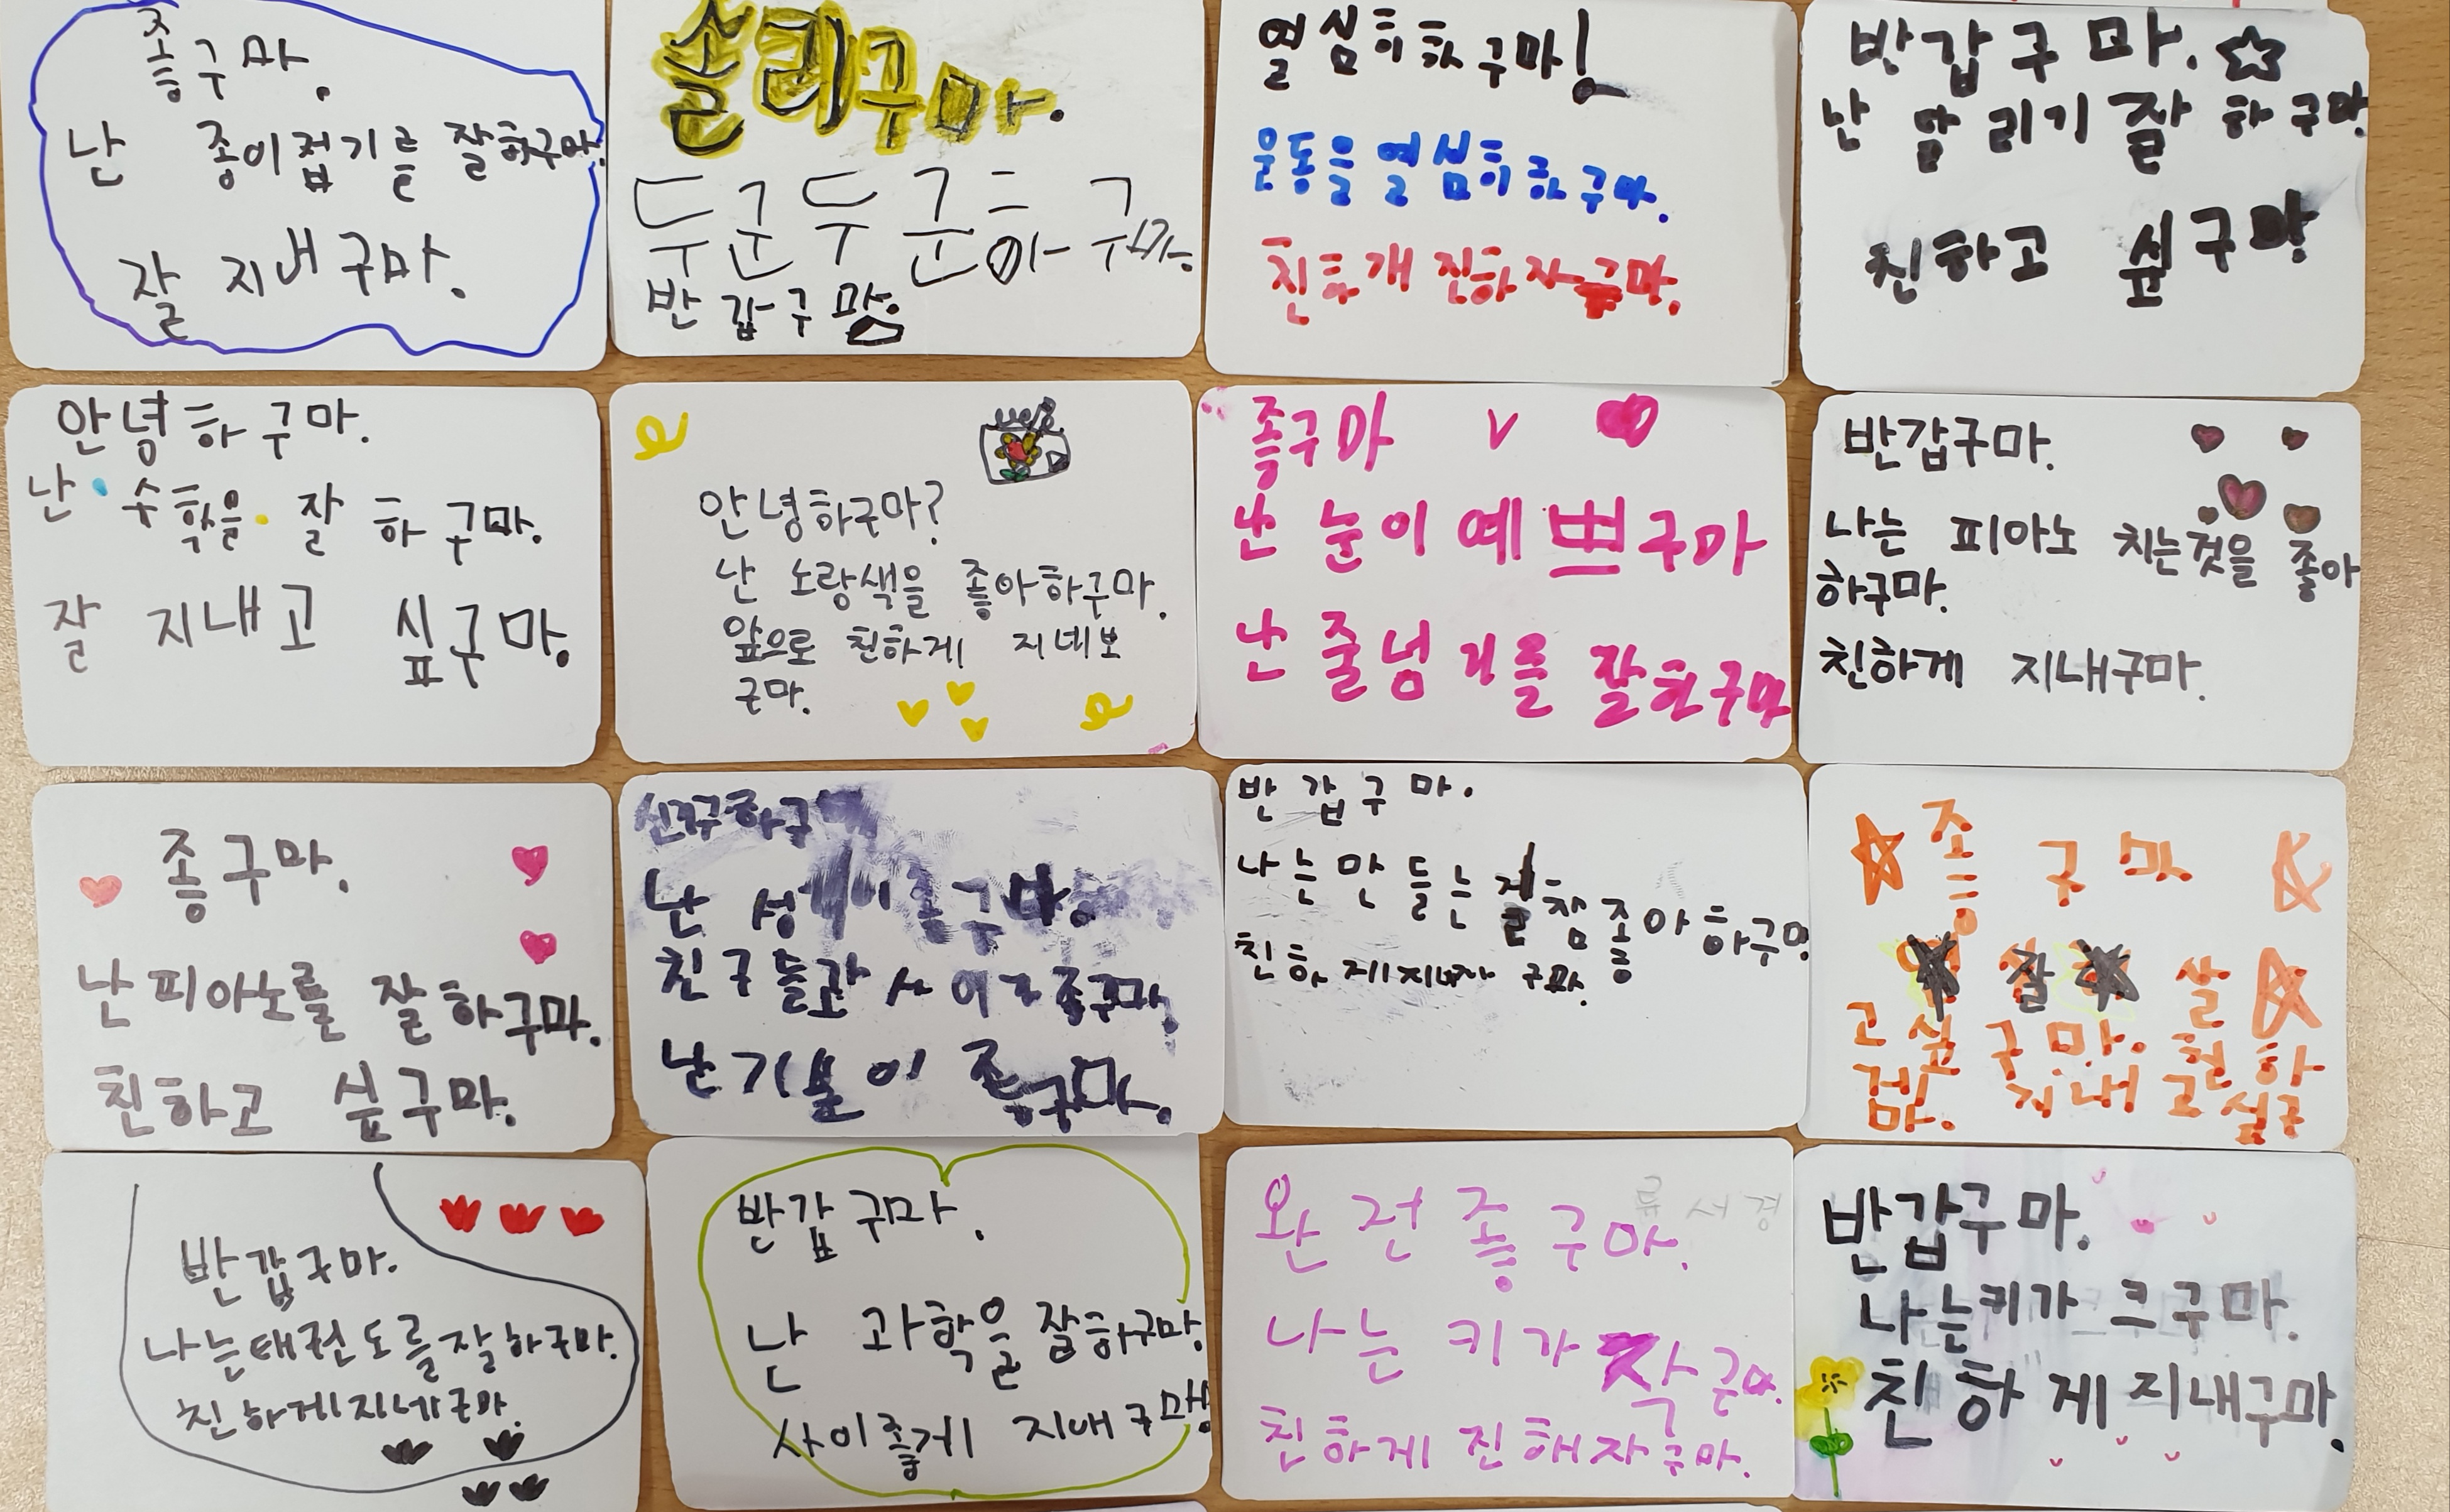 좋구마.
난 종이접기를 잘하구마.
잘 지내구마.
솔리구마.
두군두군하구마.
반갑구마.
열심히하구마!
운동을 열심히하구마.
친하자구마.
반갑구마.
난 달리기 잘하구마.
친하고 싶구마
안녕하구마.
난 수학을 잘하구마.
잘 지내고 싶구마.
안녕하구마?
난 노랑색을 좋아하구마.
앞으로 친하게 지네보
구마.
좋구마
난 눈이 예쁘구마
난 줄넘기를 잘하구마
반갑구마.
나는 피아노 치는것을 좋아
하구마.
친하게 지내구마.
좋구마.
난 피아노를 잘하구마.
친하고 싶구마.
난 구마.
친구들과 사이 좋구마.
난 기분이 좋구마.
반갑구마.
나는 만들는 걸 참 좋아하구마
친하게지내자구마.
좋구마.
잘
고싶구마. 친하
지내고싶구
마.
반갑구마.
나는태권도를잘하구마.
친하게지네구마.
반갑구마.
난 과학을 잘하구마.
사이좋게 지내구마!
완전좋구마.
류서경
나는 키가 작구마.
친하게 진해자구마.
반갑구마.
나는키가 크구마.
친하게 지내구마.